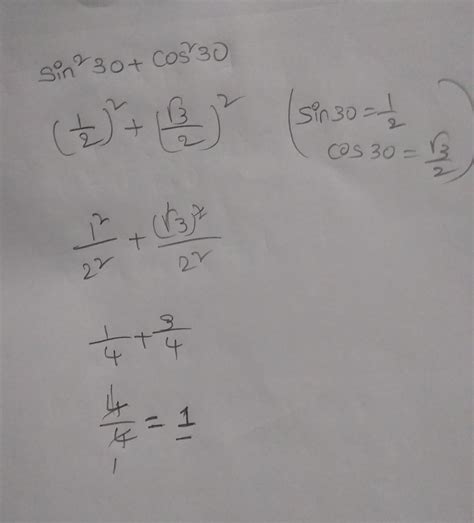 sin²30 + cos²30
(1/2)² + (√3/2)² (sin30 = 1/2
cos30 = √3/2)
1²/2² + (√3)²/2²
1/4 + 3/4
4/4 = 1
1